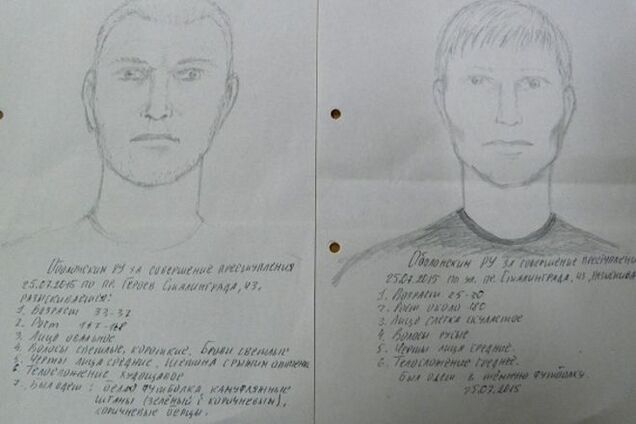 Оболонским РУ за совершение преступления
25.07.2015 по пр. Героев Сталинграда, 43.
разыскивается:
1. Возраст 33-37
2. Рост
3. Лицо овальное
4. Волосы светлые, короткие. Брови светлые
5. Черты лица средние, щетина с рыжим оттенком
6 Телосложение худощавое
7. Был одет: белая футболка, камуфляжные
штаны (зелёный с коричневым),
коричневые берцы.
Оболонским РУ за совершение преступления
25.07.2015 по ул. пр. Сталинграда, 43,
1. Возраст 25-30
2. Рост около 180
3. Лицо слегка скуластое
4. Волосы русые
5. Черты лица средние
6. Телосложение среднее.
Был одет в тёмную футболку
25.07.2015